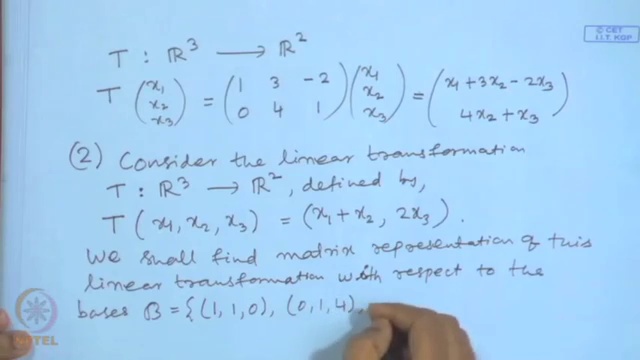 © CET
I.I.T. KGP
T : ℝ³ ⟶ ℝ²
T (x₁ x₂ x₃) = (1 3 -2 0 4 1) (x₁ x₂ x₃) = (x₁ + 3x₂ - 2x₃ 4x₂ + x₃)
(2) Consider the linear transformation
T : ℝ³ ⟶ ℝ², defined by,
T (x₁, x₂, x₃) = (x₁ + x₂, 2x₃).
We shall find matrix representation of this
linear transformation with respect to the
bases B = {(1, 1, 0), (0, 1, 4),
NPTEL